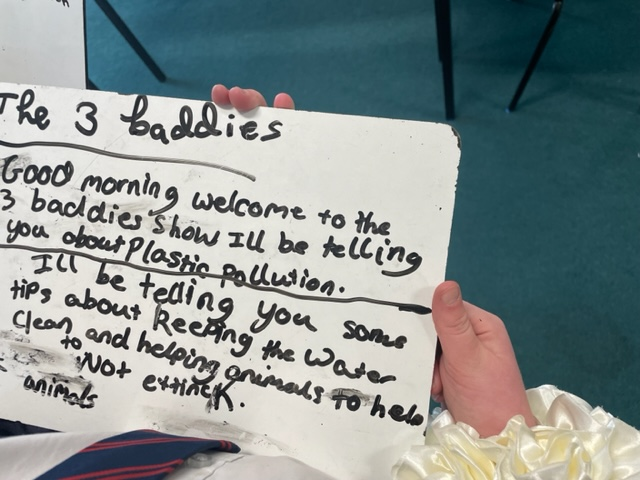 The 3 baddies
Good morning welcome to the
3 baddies show Ill be telling
you about Plastic Pollution.
Ill be telling you some
tips about Keeping the water
Clean and helping animals to help
to
Not extincK.
animals